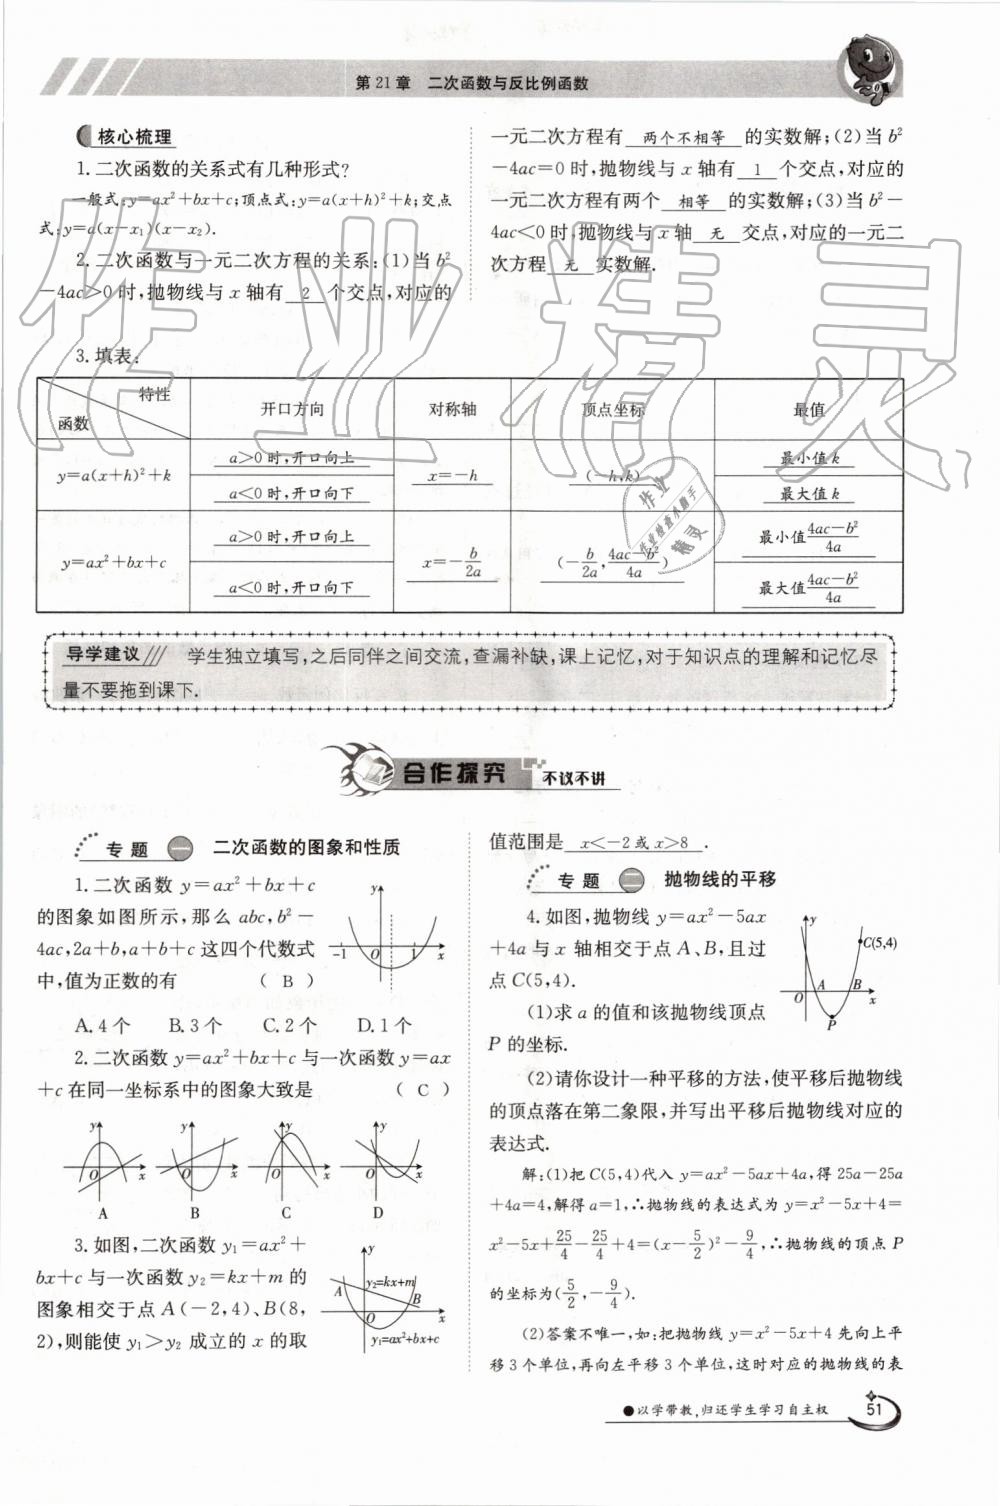 第21章 二次函数与反比例函数
核心梳理
1.二次函数的关系式有几种形式?
一般式:y=ax²+bx+c;顶点式:y=a(x+h)²+k;交点
式:y=a(x-x₁)(x-x₂).
2.二次函数与一元二次方程的关系:(1)当b²
-4ac>0时,抛物线与x轴有 2 个交点,对应的
一元二次方程有 两个不相等 的实数解;(2)当b²
-4ac=0时,抛物线与x轴有 1 个交点,对应的
一元二次方程有两个 相等 的实数解;(3)当b²-
4ac<0时,抛物线与x轴 无 交点,对应的一元二
次方程 无 实数解.
3.填表:
特性
函数
开口方向 对称轴 顶点坐标 最值
y=a(x+h)²+k
a>0时,开口向上
a<0时,开口向下
x=-h
(-h,k)
最小值k
最大值k
y=ax²+bx+c
a>0时,开口向上
a<0时,开口向下
x=-b/2a
(-b/2a,4ac-b²/4a)
最小值4ac-b²/4a
最大值4ac-b²/4a
导学建议 学生独立填写,之后同伴之间交流,查漏补缺,课上记忆,对于知识点的理解和记忆尽
量不要拖到课下.
合作探究 不议不讲
专题 一 二次函数的图象和性质
1.二次函数y=ax²+bx+c
的图象如图所示,那么abc,b²-
4ac,2a+b,a+b+c这四个代数式
中,值为正数的有 ( B )
y
-1 O 1 x
A.4个 B.3个 C.2个 D.1个
2.二次函数y=ax²+bx+c与一次函数y=ax
+c在同一坐标系中的图象大致是 ( C )
y y y y
O x O x O x O x
A B C D
3.如图,二次函数y₁=ax²+
bx+c与一次函数y₂=kx+m的
图象相交于点A(-2,4)、B(8,
2),则能使y₁>y₂成立的x的取
y
y₂=kx+m
A B
O x
y₁=ax²+bx+c
值范围是 x<-2或x>8 .
专题 二 抛物线的平移
4.如图,抛物线y=ax²-5ax
+4a与x轴相交于点A、B,且过
点C(5,4).
(1)求a的值和该抛物线顶点
P的坐标.
y
C(5,4)
A B
O x
P
(2)请你设计一种平移的方法,使平移后抛物线
的顶点落在第二象限,并写出平移后抛物线对应的
表达式.
解:(1)把C(5,4)代入y=ax²-5ax+4a,得25a-25a
+4a=4,解得a=1,∴抛物线的表达式为y=x²-5x+4=
x²-5x+25/4-25/4+4=(x-5/2)²-9/4,∴抛物线的顶点P
的坐标为(5/2,-9/4).
(2)答案不唯一,如:把抛物线y=x²-5x+4先向上平
移3个单位,再向左平移3个单位,这时对应的抛物线的表
●以学带教,归还学生学习自主权
51
作业精灵
作业
作业检查小助手
精灵